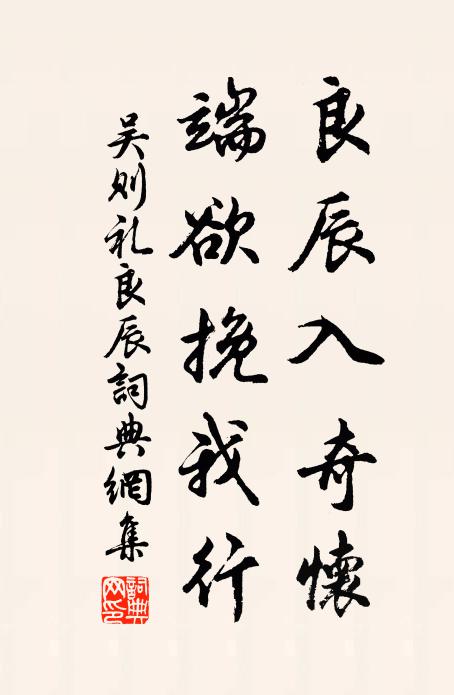 良辰入奇懷
端欲挽我行
吴则礼良辰詞典網集
詞典网印